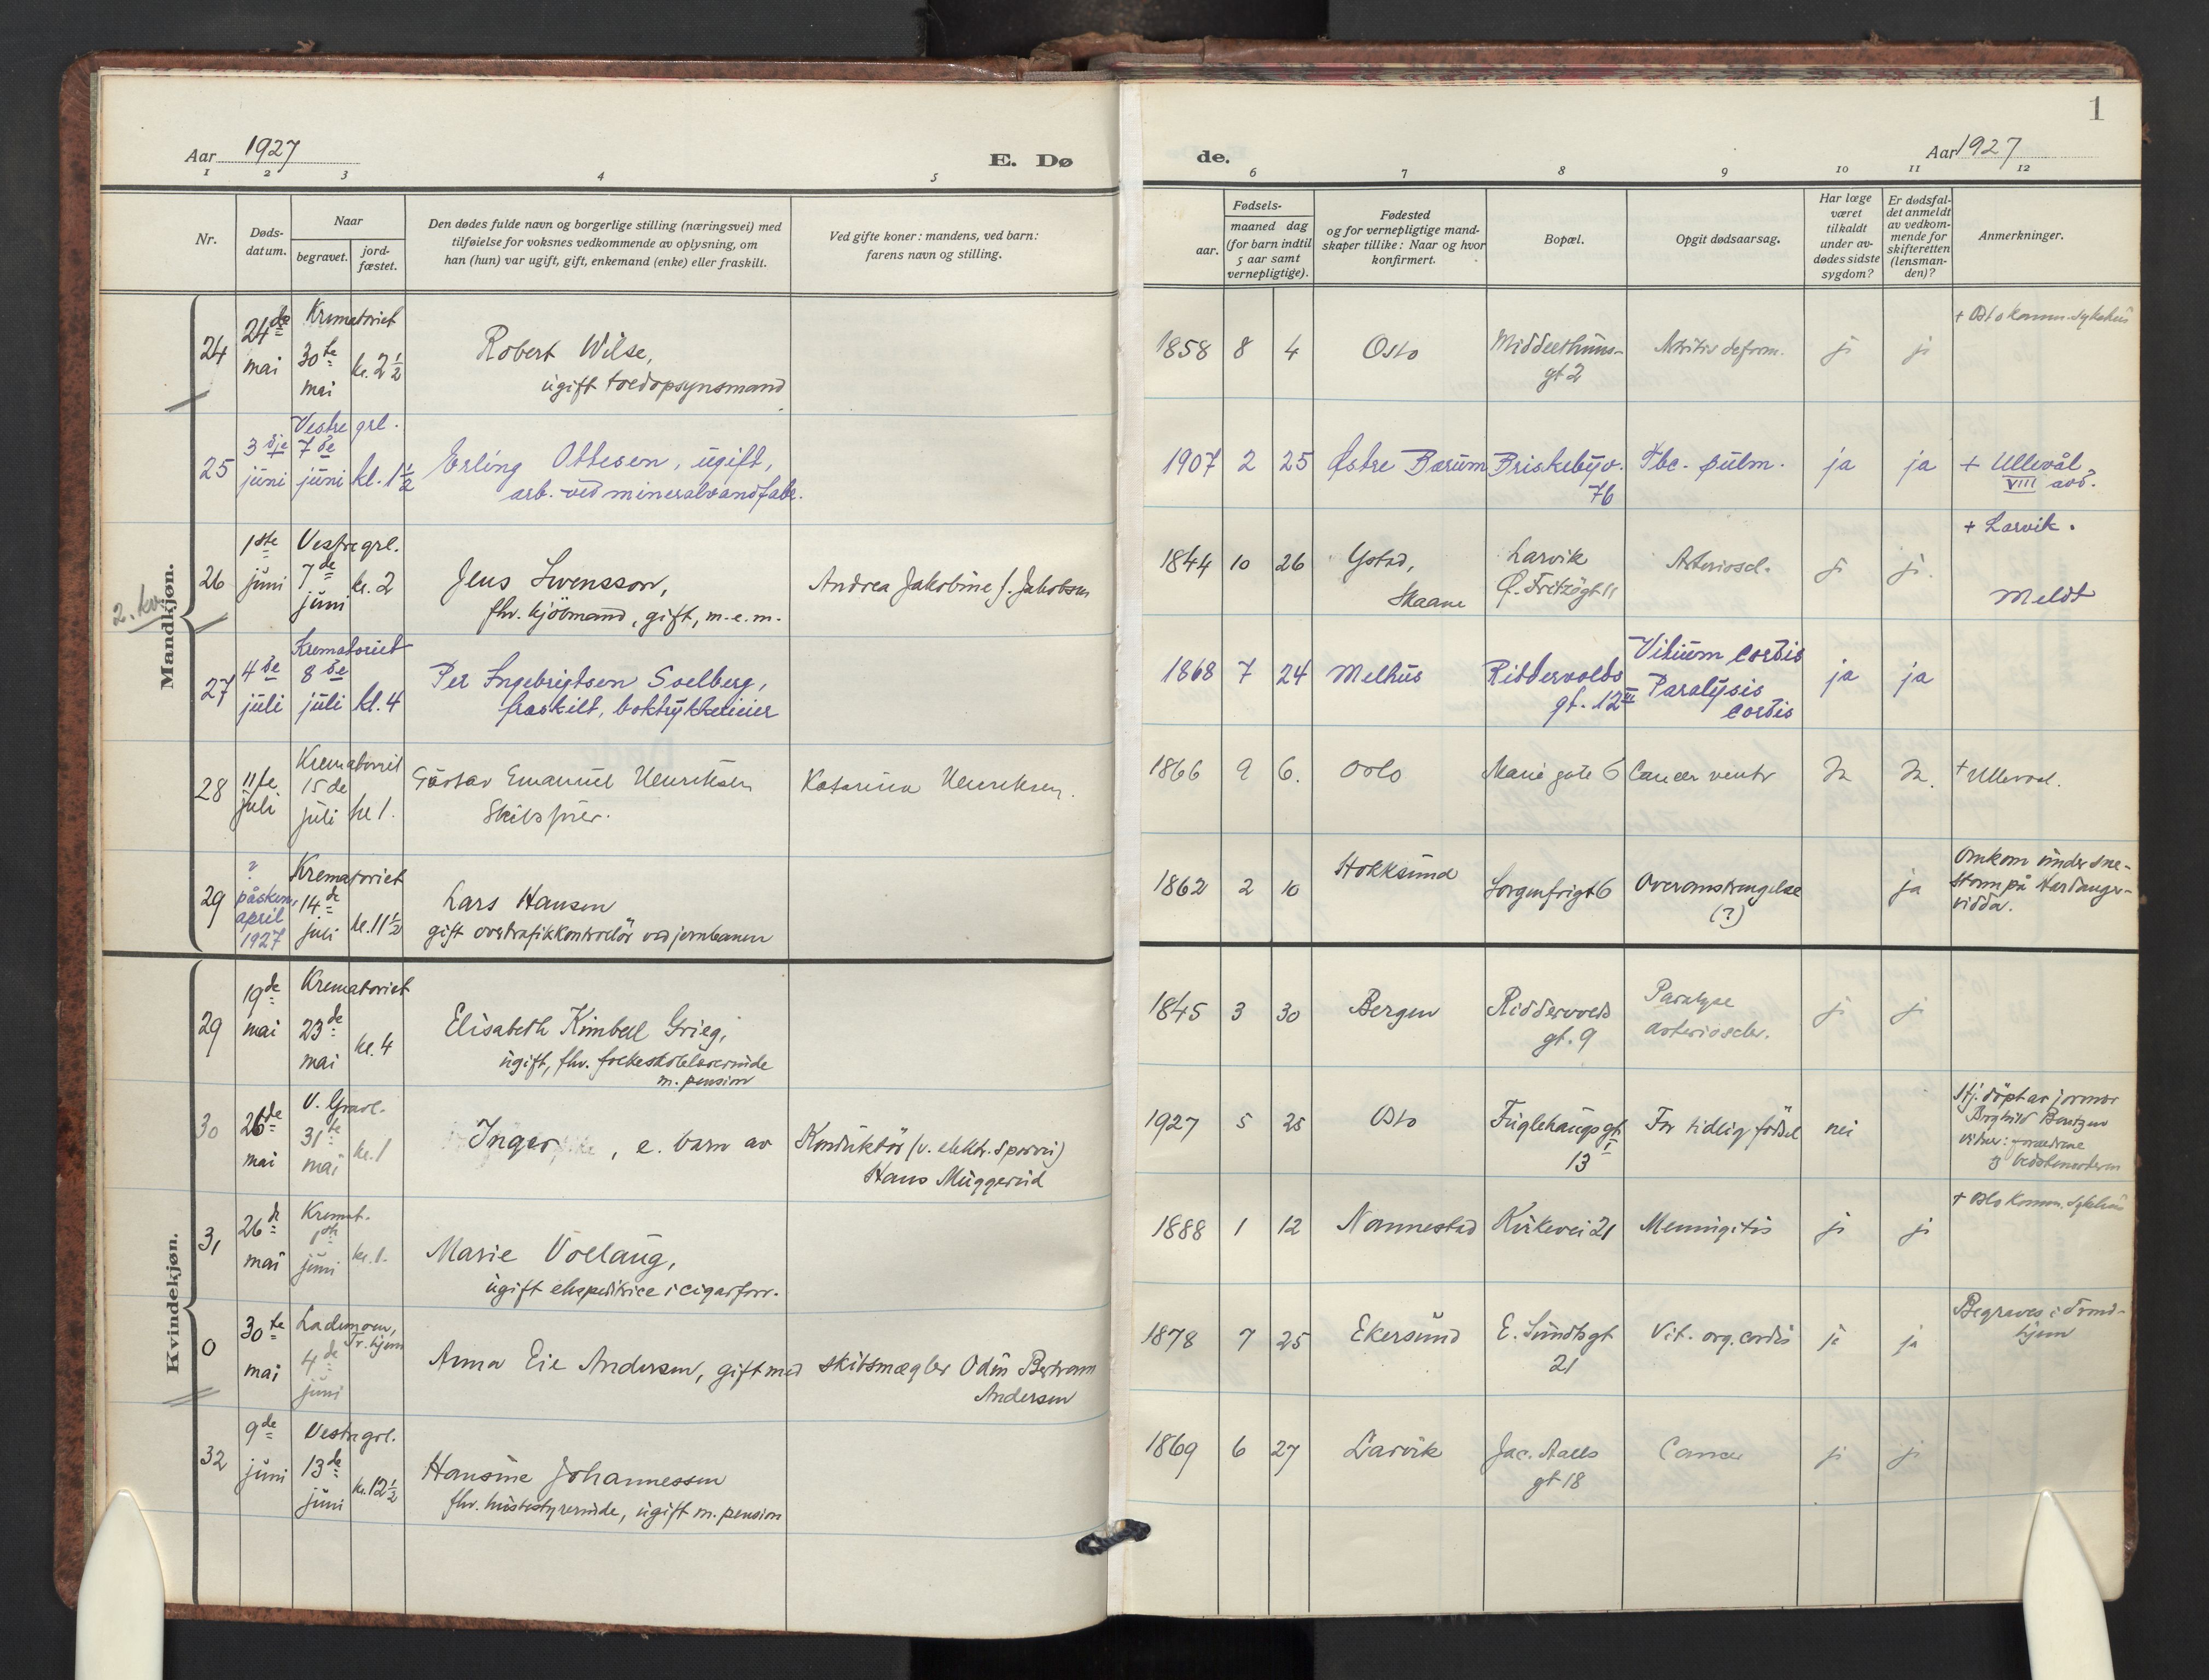 1
Aar 1927
E. Dø
de.
Aar 1927
1 2 3 4 5
6 7 8 9 10 11 12
Nr.
Døds-
datum.
Naar
begravet.
jord-
fæstet.
Den dødes fulde navn og borgerlige stilling (næringsvei) med
tilføielse for voksnes vedkommende av oplysning, om
han (hun) var ugift, gift, enkemand (enke) eller fraskilt.
Ved gifte koner: mandens, ved barn:
farens navn og stilling.
Fødsels-
aar.
maaned dag
(for barn indtil
5 aar samt
vernepligtige).
Fødested
og for vernepligtige mand-
skaper tillike: Naar og hvor
konfirmert.
Bopæl.
Opgit dødsaarsag.
Har læge
været
tilkaldt
under av-
dødes sidste
sygdom?
Er dødsfal-
det anmeldt
av vedkom-
mende for
skifteretten
(lensman-
den)?
Anmerkninger.
Mandkjøn.
2. kv.
24
24de
mai
Krematoriet
30te
mai
kl. 2 1/2
Robert Wilse,
ugift toldopsynsmand
1858 8 4
Oslo
Middelthuns-
gt 2
Artritis deform.
ja
ja
+ Oslo komm. sykehus
25
3dje
juni
Vestre grl.
7de
juni
kl. 1 1/2
Erling Ottesen, ugift,
arb. ved mineralvandfabr.
1907 2 25
Østre Bærum
Briskebyv.
76
Tbc. pulm.
ja
ja
+ Ullevål,
VIII avd.
26
1ste
juni
Vestre grl.
7de
juni
kl. 2
Jens Svensson,
fhv. kjöbmand, gift, m.e.m.
Andrea Jakobine f. Jakobsen
1844 10 26
Ystad,
Skaane
Larvik
Ø. Fritzögt 11
Arterioscl.
ja
ja.
+ Larvik.
Meldt
27
4de
juli
Krematoriet
8de
juli
kl. 4
Per Ingebrigtsen Solberg,
fraskilt, boktrykkerieier
1868 7 24
Melhus
Riddervolds
gt. 12 III
Vitium cordis
Paralysis
cordis
ja
ja
28
11te
juli
Krematoriet
15de
juli
kl 1.
Gustav Emanuel Henriksen
Skibsfører.
Katarina Henriksen.
1866 9 6.
Oslo
Marie gate 6
Cancer ventr
Ja
Ja.
+ Ullevaal.
29
?
påsken,
april
1927
Krematoriet
14de
juli
kl. 11 1/2
Lars Hansen
gift overtrafikkontrollör ved jernbanen
1862 2 10
Hokksund
Sorgenfrigt 6
Overanstrengelse
(?)
ja
Omkom under sne-
storm på Hardanger-
vidda.
Kvindekjøn.
29
19de
mai
Krematoriet
23de
mai
kl. 4
Elisabeth Kimbell Grieg,
ugift, fhv. folkeskolelærerinde
m. pension
1845 3 30
Bergen
Riddervolds
gt. 9
Paralyse
arterioscler.
ja
ja
30
26de
mai
V. Gravl.
31te
mai
kl. 1
Inger, e. barn av
Konduktör (v. elektr. sporvei)
Hans Muggerud
1927 5 25
Oslo
Fuglehaugsgt
13 I
For tidlig födsel
nei
Hj. döpt av jormor
Borghild Berntzen
vidner: forældrene
og bedstemoderen
31
26de
mai
Kremat.
1ste
juni
kl. 1.
Marie Vollaug,
ugift ekspeditrice i cigarforr.
1888 1 12
Nannestad
Kirkevei 21
Meningitis
ja
ja
+ Oslo Komm. Sykehus
0
30te
mai
Lademoen,
Tr.hjem
4de
juni
Anna Eie Andersen, gift med
skibsmægler Odin Bertram
Andersen
1878 7 25
Ekersund
E. Sundts gt
21
Vit. org. cordis
ja
ja
Begraves i Trond-
hjem
32
9de
juni
Vestre grl.
13de
juni
kl. 12 1/2
Hansine Johannessen
fhv. husbestyrerinde, ugift m. pension
1869 6 27
Larvik
Jac. Aalls
gt 18
Cancer
ja
ja